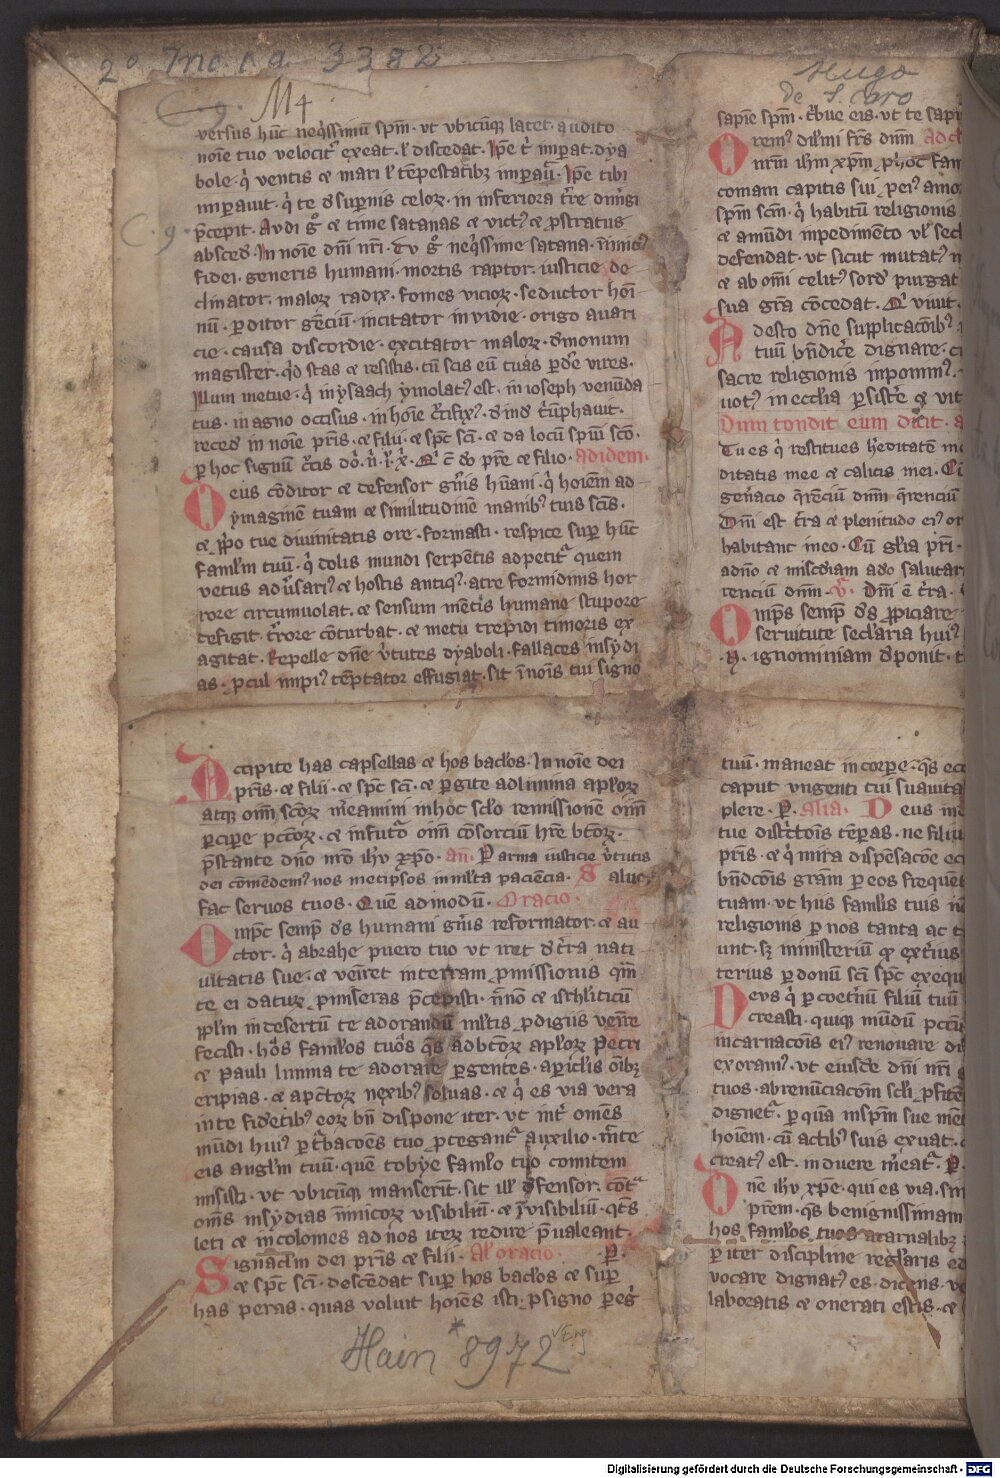 2° Inc. c. a. 3382
C. 9. M4
versus hūc neq̄ssimū spm̄ · vt vbicūq̧ latet · audito
noīe tuo velocit̄ exeat · l̄ discedat · Ip̄e t̄ imp̄at · dya
bole · q̇ ventis ⁊ mari l̄ tēpestatibꝫ imp̄auit̄ · Ip̄e tibi
imperauit · q̇ te d̄ sup̄nis celoꝝ · in inferiora t̄re dim̄gi
p̄cepit · Audi g̊ ⁊ time satanas ⁊ vict᷒ ⁊ p̄stratus
C. 9.
absced̄ · In noīe dn̄i nr̄i · Tu g̊ neq̄ssime satana · īnimic᷒
fidei · generis humani · mortis raptor · iusticie de
clinator · maloꝝ radix · fomes vicioꝝ · seductor hoī
nū · ꝑditor gēciū · incitator invidie · origo auari
cie · causa discordie · excitator maloꝝ · demonum
magister · qͥd stas ⁊ resistis · cū scis eū tuas ꝑde vires ·
Illum metue · q̇ in ysaach ymolat᷒ est · in ioseph venūda
tus · in agno occisus · in hoīe c̄cifix᷒ · d̄ ind̄ t̄uphauit ·
reced̄ in noīe pr̄is · ⁊ filii · ⁊ sp̄c sc̄i · ⁊ da locū spūi scō ·
ꝑ hoc signū c̄cis dō · n̄ · i̅ · x̄ · Qͥ c̄ dō pr̄e ⁊ filio · ad idem ·
Deus cōditor ⁊ defensor gn̄is hūani · q̇ hoīem ad
ymaginē tuam ⁊ similitudinē manibꝫ tuis
⁊ ip̄o tue diuinitatis ore · formasti · respice sup̄ hūc
famlm̄ tuū · q̇ dolis mundi serpētis adpetit̄ quem
vetus aduersari᷒ ⁊ hostis antiq᷒ · atre formidinis hor
rore circumuolat · ⁊ sensum mētis humane stupore
defigit · t̄rore cōturbat · ⁊ metu trepidi timoris ex
agitat · Repelle dn̄e v̄tutes dyaboli · fallaces insydi
as · ꝓcul impi᷒ tēptator effugiat · sit īnoīs tui signo
Accipite has capsellas ⁊ hos baclōs · In noīe dei
pr̄is · ⁊ filii · ⁊ sp̄c sc̄i · ⁊ ꝑgite ad limina apl̄oꝝ
atq̧ om̄i sc̄oꝝ m̄eamini in hoc sclō remissionē om̄i
ꝑcip̄e pc̄toꝝ · ⁊ in futur̄o om̄ cōsorciū hr̄e b̄toꝝ ·
p̄stante dn̄o nr̄o ih̄u xp̄o · añ · P arma iusticie v̄tutis
dei cōmēdem᷒ nos metip̄sos in ml̄ta paciēcia · Saluos
fac seruos tuos · Quē admodū · Oracio ·
Omp̄c semp̄ ds humani gn̄is reformator · ⁊ au
ctor · q̇ abrahe puero tuo vt iret d̄ t̄ra nati
uitatis sue · ⁊ vēret in terram ꝓmissionis qm̄
te ei daturꝝ ꝓmiseras p̄cepisti · n̄no ⁊ isrhliticū
pplm̄ in desertū te adorandū ml̄tis ꝓdigiis venīre
fecisti · hōs famlōs tuōs qs ad b̄toꝝ apl̄oꝝ Petri
⁊ pauli limina te adorare ꝑgentes · a ꝑiclīs oībꝫ
eripias · ⁊ a pc̄toꝝ nexibꝫ soluas · ⁊ q̇ es via vera
in te fidētibꝫ eoꝝ bn̄ dispone iter · vt int̄ omēs
mūdi hui᷒ ꝑt̄bacōes tuo ꝓtegant̄ auxilio · m̄te
eis angl̄m tuū · quē tobye famlō tuo comitem
misisti · vt vbicūq̧ manserīt · sit ill̄ d̄fensor · cōt̄
om̄s insydias īnimicoꝝ visibiliū · ⁊ īvisibiliū · qt̄s
leti ⁊ in̄colomes ad nos iteꝝ redire p̄ualeant ·
Signaclm̄ dei pr̄is ⁊ filii · Al̄ oracio · P ·
⁊ sp̄c sc̄i · descēdat sup̄ hos baclōs ⁊ sup̄
has peras · quas voluit hoīes isti · ꝓ signo ꝑeg̊
Hain *8972
Hugo
de S. Caro
sapīe spm̄ · t̄bue eis · vt te sapi
Orem᷒ dil̄mi fr̄s dn̄m
nr̄m ih̄m xp̄m · ꝓ hoc fam
comam capitis sui · ꝓ ei᷒ amo
spm̄ scm̄ · q̇ habitū religionis
⁊ a mūdi impedimēto vl̄ secl
defendat · vt sicut mutat᷒
⁊ ab om̄i celit᷒ sord̄ purgat
sua gr̄a cōcedat · Qͥ viuit ·
Adesto dn̄e supplicacōibꝫ
tuū bn̄dic̄e dignare · c
sacre religionis inponim᷒ ·
uot᷒ in ecclīa ꝑsist̄e ⁊ vit
Dum tondit eum dicit · a
Tu es q̇ restitues h̄editatē m
ditatis mee ⁊ calicis mei · Cū
gen̄acio q̄renciū dn̄m q̄renciū
Dn̄i est t̄ra ⁊ plenitudo ei᷒ or
habitant in eo · Cū gl̄ia pr̄i ·
a dn̄o ⁊ mīsc̄diam a d̄o salutar
renciū dn̄m · V̄ · Dn̄i ē t̄ra ·
Omp̄s semp̄ ds ꝓpiciare
seruitute seclāria hui᷒
· N · ignominiam d̄ponit · t
tuū · maneat in corꝑe · qs ec
caput vngenti tui suauita
plere · P · Alia · Deus in
tue disc̄tiōis tēperas · ne filiu
pr̄is · ⁊ q̇ mira dispēsacōe ec
bn̄dcōis gram̄ ꝑ eos frequēt
tuam · vt hūs famlīs tuis
religionis ꝑ nos tanta ac t
unt · sꝫ ministeriū ⁊ ext̄ius
terius ꝑ donū sc̄i sp̄c exequ
Deus q̇ ꝑ coet̄nū filiū tuū
creasti · quiq̧ mūdū pctī
incarnacōis ei᷒ renouare di
exoram᷒ · vt eiusdē dn̄i nr̄i
tuos · abrenūciacōm sclī ꝓfitē
dignet̄ · ꝑ quā in spm̄ sue mē
hoīem · cū actibꝫ suis exuat ·
creat᷒ est · induere m̄eat̄ · P ·
Dn̄e ih̄u xp̄e · qui es via · sin
prēm · qs benignissimam
hos famlōs tuos a carnalibꝫ
ꝑ iter discipline reglāris
vocare dignat᷒ es · dicens · v
laboratis ⁊ onerati estis · ⁊
Digitalisierung gefördert durch die Deutsche Forschungsgemeinschaft - DFG